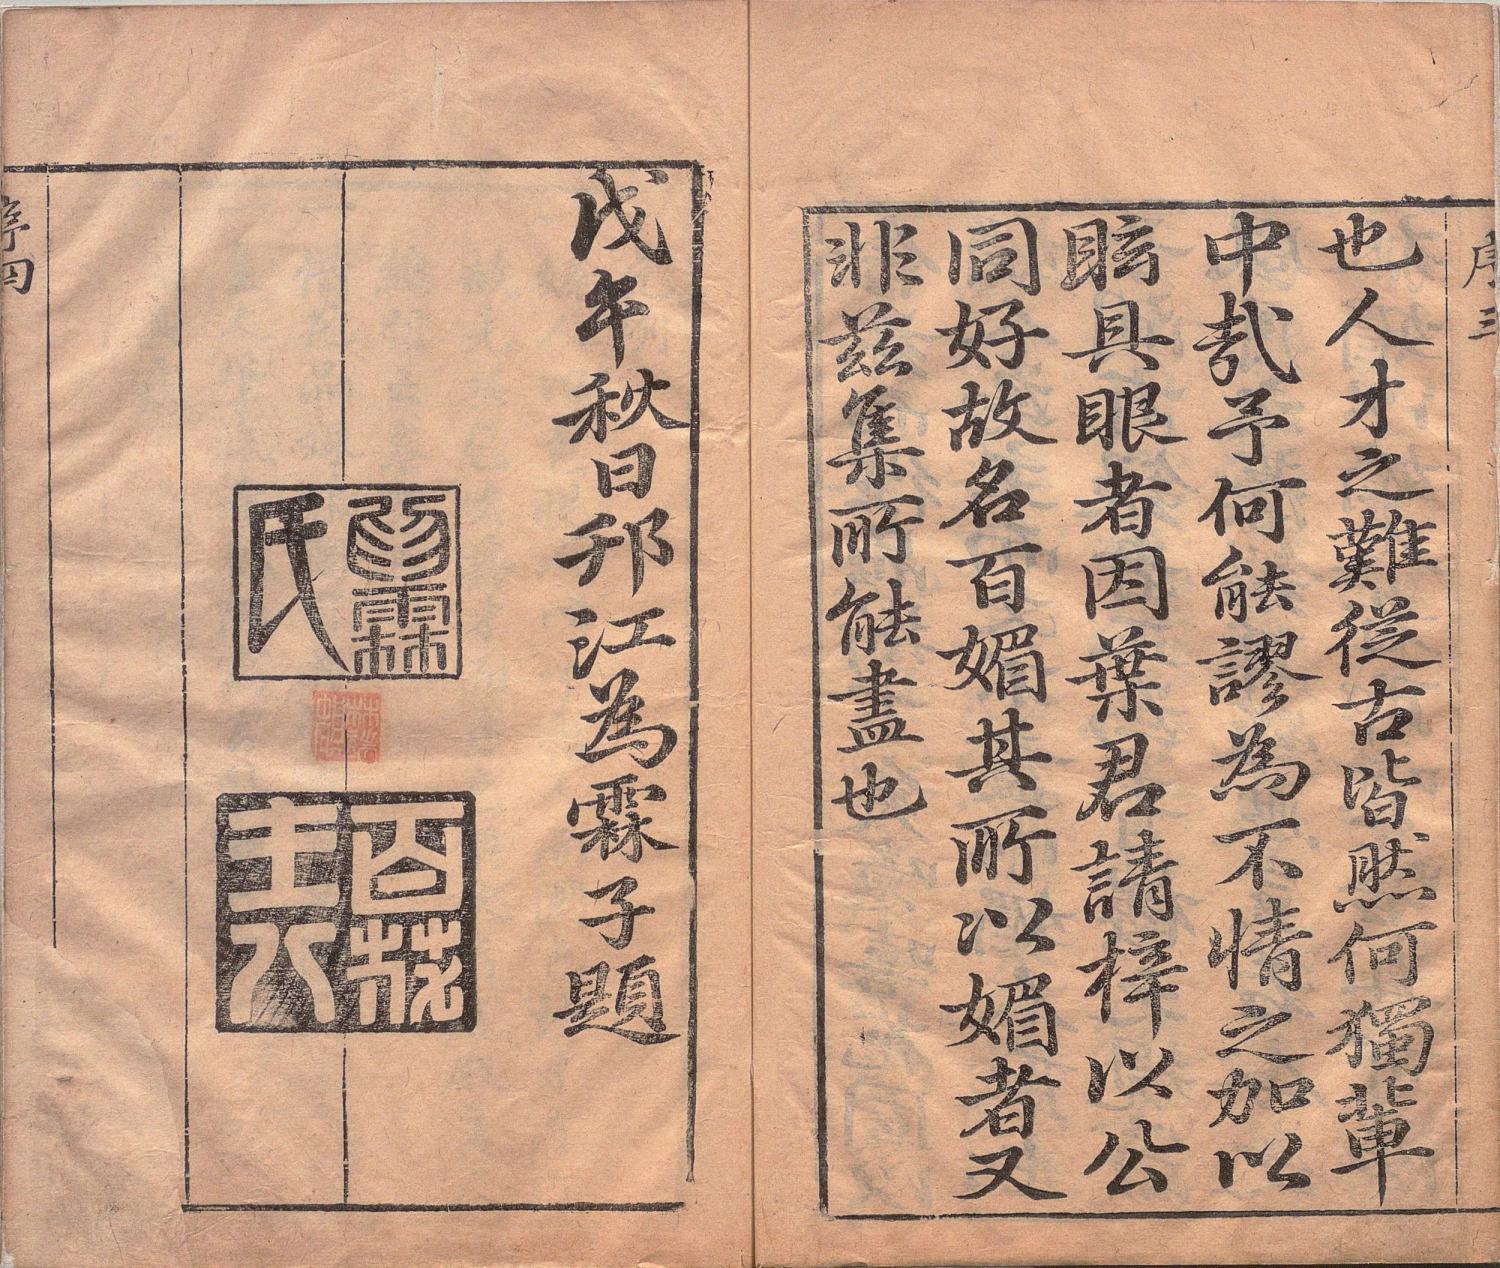 序三
也人才之難從古皆然何獨輩
中哉予何能謬為不情之加以
眩具眼者因葉君請梓以公
同好故名百媚其所以媚者又
非兹集所能盡也
戊午秋日邗江為霖子題
為霖氏
百花主人
序四